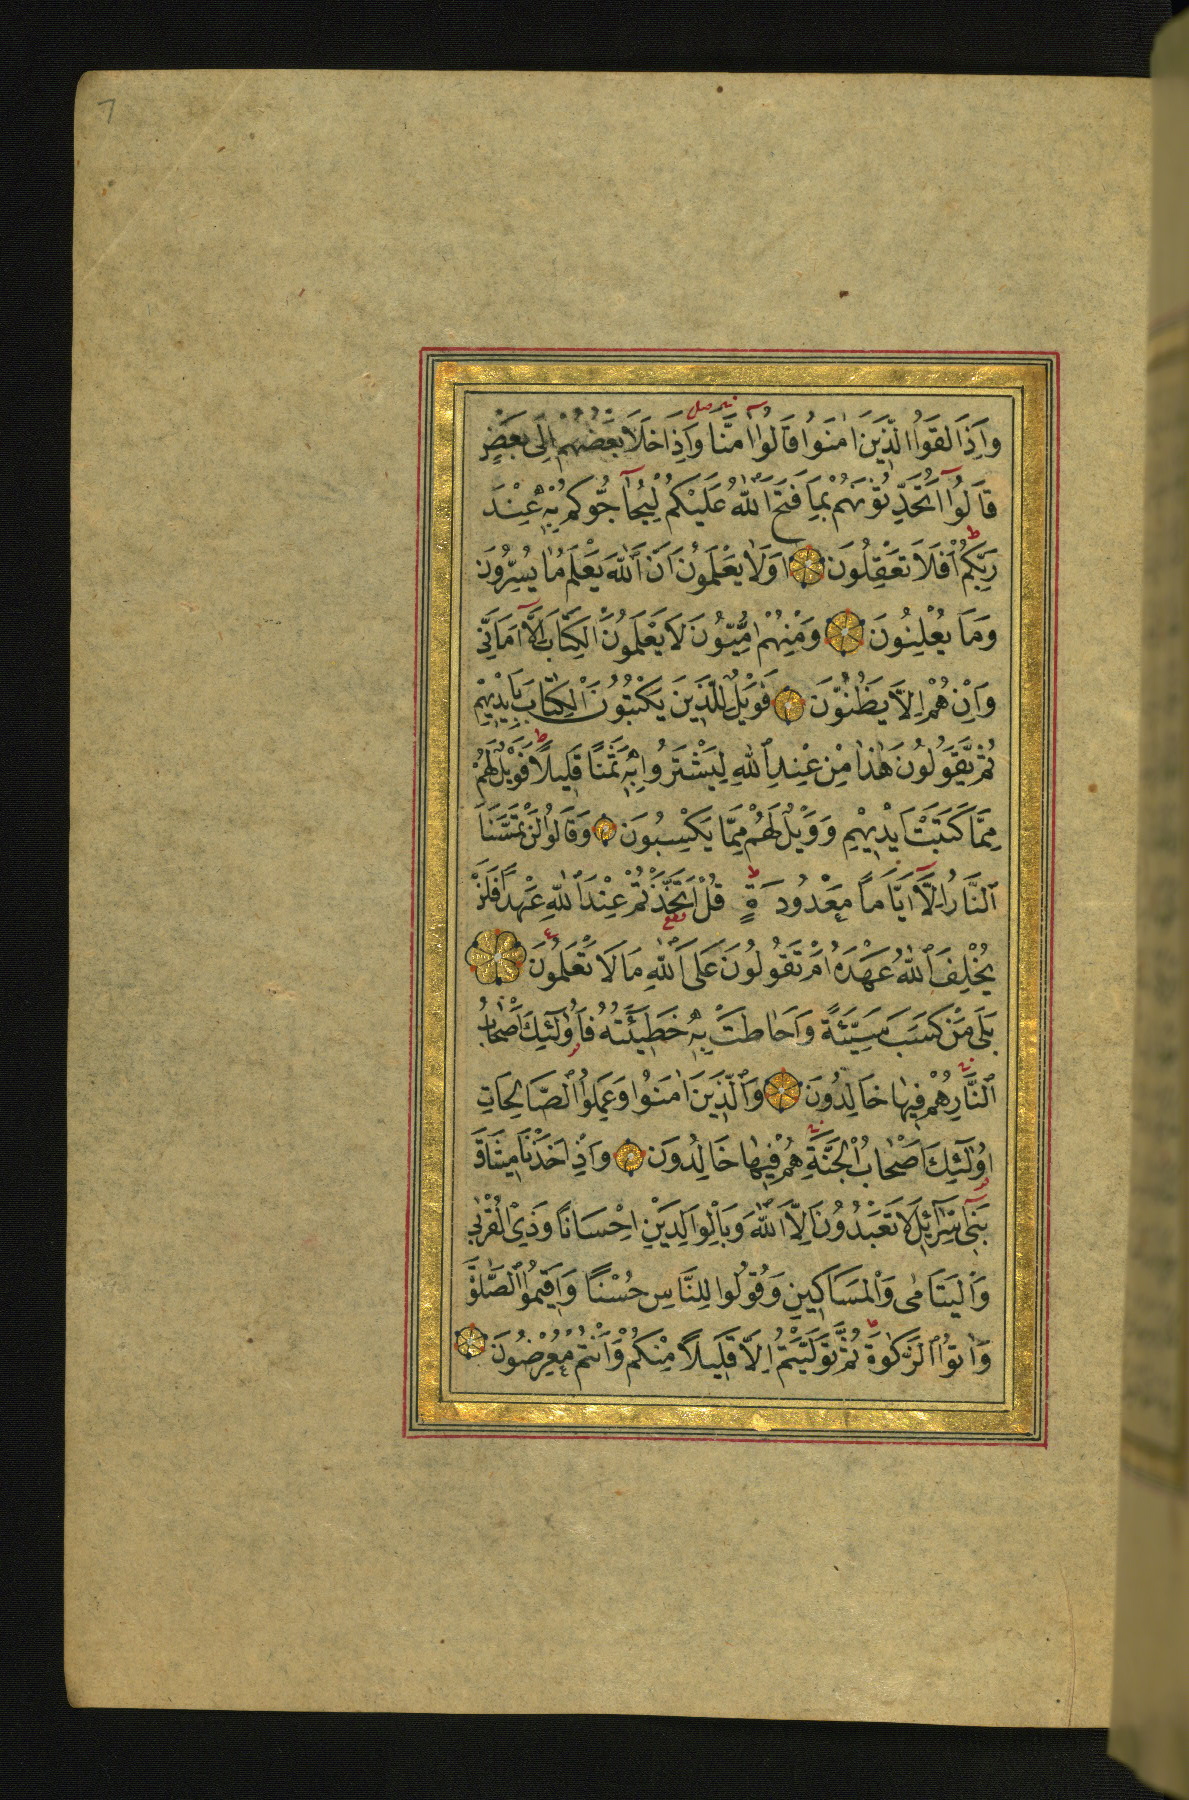 7
وَاِذَا لَقُوا الَّذِينَ اٰمَنُوا قَالُوا اٰمَنَّا وَاِذَا خَلَا بَعْضُهُمْ اِلٰى بَعْضٍ
قَالُوا اَتُحَدِّثُونَهُمْ بِمَا فَتَحَ اللّٰهُ عَلَيْكُمْ لِيُحَاجُّوكُمْ بِهِ عِنْدَ
رَبِّكُمْ اَفَلَا تَعْقِلُونَ اَوَلَا يَعْلَمُونَ اَنَّ اللّٰهَ يَعْلَمُ مَا يُسِرُّونَ
وَمَا يُعْلِنُونَ وَمِنْهُمْ اُمِّيُّونَ لَا يَعْلَمُونَ الْكِتَابَ اِلَّا اَمَانِيَّ
وَاِنْ هُمْ اِلَّا يَظُنُّونَ فَوَيْلٌ لِلَّذِينَ يَكْتُبُونَ الْكِتَابَ بِاَيْدِيهِمْ
ثُمَّ يَقُولُونَ هٰذَا مِنْ عِنْدِ اللّٰهِ لِيَشْتَرُوا بِهِ ثَمَنًا قَلِيلًا فَوَيْلٌ لَهُمْ
مِمَّا كَتَبَتْ اَيْدِيهِمْ وَوَيْلٌ لَهُمْ مِمَّا يَكْسِبُونَ وَقَالُوا لَنْ تَمَسَّنَا
النَّارُ اِلَّا اَيَّامًا مَعْدُودَةً قُلْ اَتَّخَذْتُمْ عِنْدَ اللّٰهِ عَهْدًا فَلَنْ
يُخْلِفَ اللّٰهُ عَهْدَهُ اَمْ تَقُولُونَ عَلَى اللّٰهِ مَا لَا تَعْلَمُونَ
بَلٰى مَنْ كَسَبَ سَيِّئَةً وَاَحَاطَتْ بِهِ خَطِيئَتُهُ فَاُولٰئِكَ اَصْحَابُ
النَّارِ هُمْ فِيهَا خَالِدُونَ وَالَّذِينَ اٰمَنُوا وَعَمِلُوا الصَّالِحَاتِ
اُولٰئِكَ اَصْحَابُ الْجَنَّةِ هُمْ فِيهَا خَالِدُونَ وَاِذْ اَخَذْنَا مِيثَاقَ
بَنِي اِسْرَائِيلَ لَا تَعْبُدُونَ اِلَّا اللّٰهَ وَبِالْوَالِدَيْنِ اِحْسَانًا وَذِي الْقُرْبٰى
وَالْيَتَامٰى وَالْمَسَاكِينِ وَقُولُوا لِلنَّاسِ حُسْنًا وَاَقِيمُوا الصَّلٰوةَ
وَاٰتُوا الزَّكٰوةَ ثُمَّ تَوَلَّيْتُمْ اِلَّا قَلِيلًا مِنْكُمْ وَاَنْتُمْ مُعْرِضُونَ